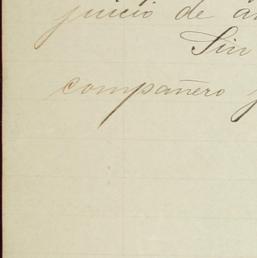 juicio de
Sin
compañero